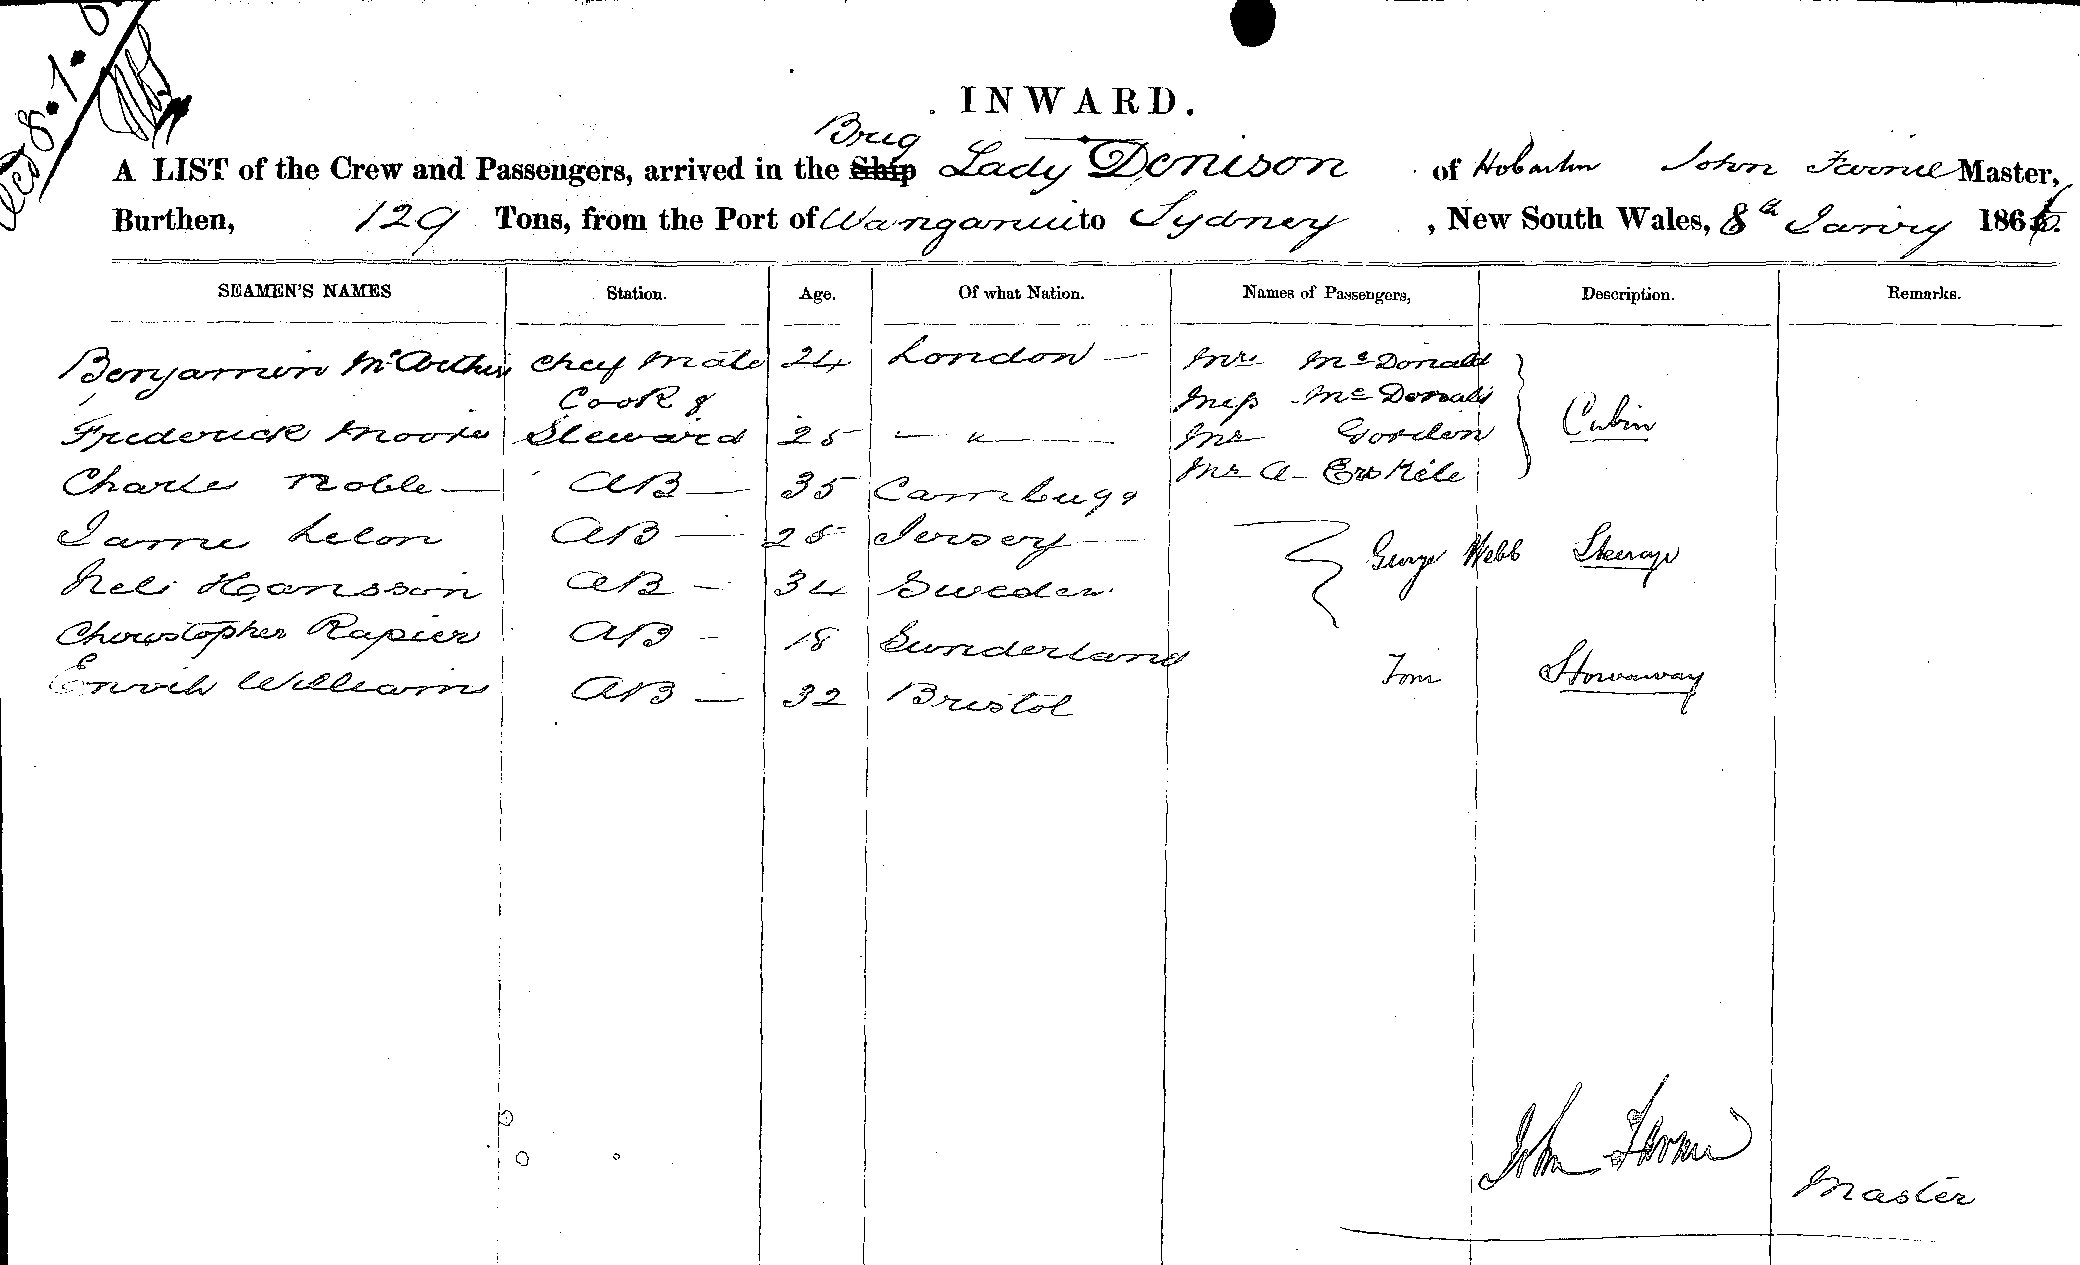 8.1.
INWARD.
Brig
A LIST of the Crew and Passengers, arrived in the Ship Lady Denison of Hobarton John Master,
Burthen, 129 Tons, from the Port of Wanganui to Sydney, New South Wales, 8th Janry 186
SEAMEN'S NAMES Station. Age. Of what Nation. Names of Passengers, Description. Remarks.
Benjamin McArthur Chief Mate 24 London — Mrs McDonald
Cook & Miss McDonald
Frederick Moore Steward 25 — " — Mr Gordon Cabin
Mr A
Charle Noble — AB — 35
Jame Lelon AB — 25 Jersey —
George Webb Steerage
Nels Hansson AB — 34 Sweden
Christopher Rapier AB - 18 Sunderland
William AB — 32 Bristol
Tom Stowaway
John
Master